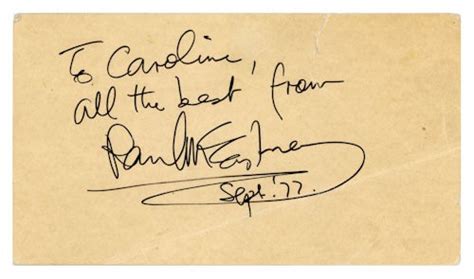 To Caroline,
all the best' from
Paul McCartney
Sept. '77.